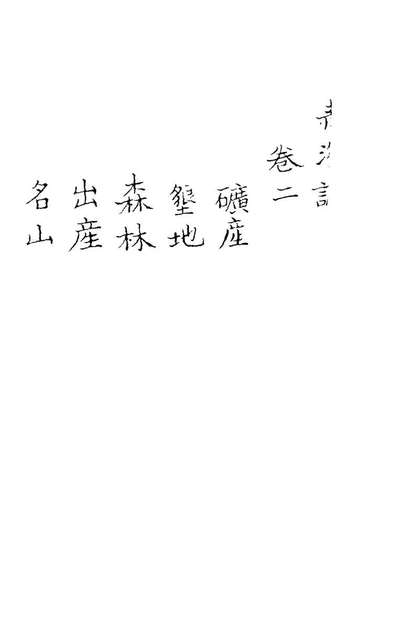 卷二
礦產
墾地
森林
出產
名山